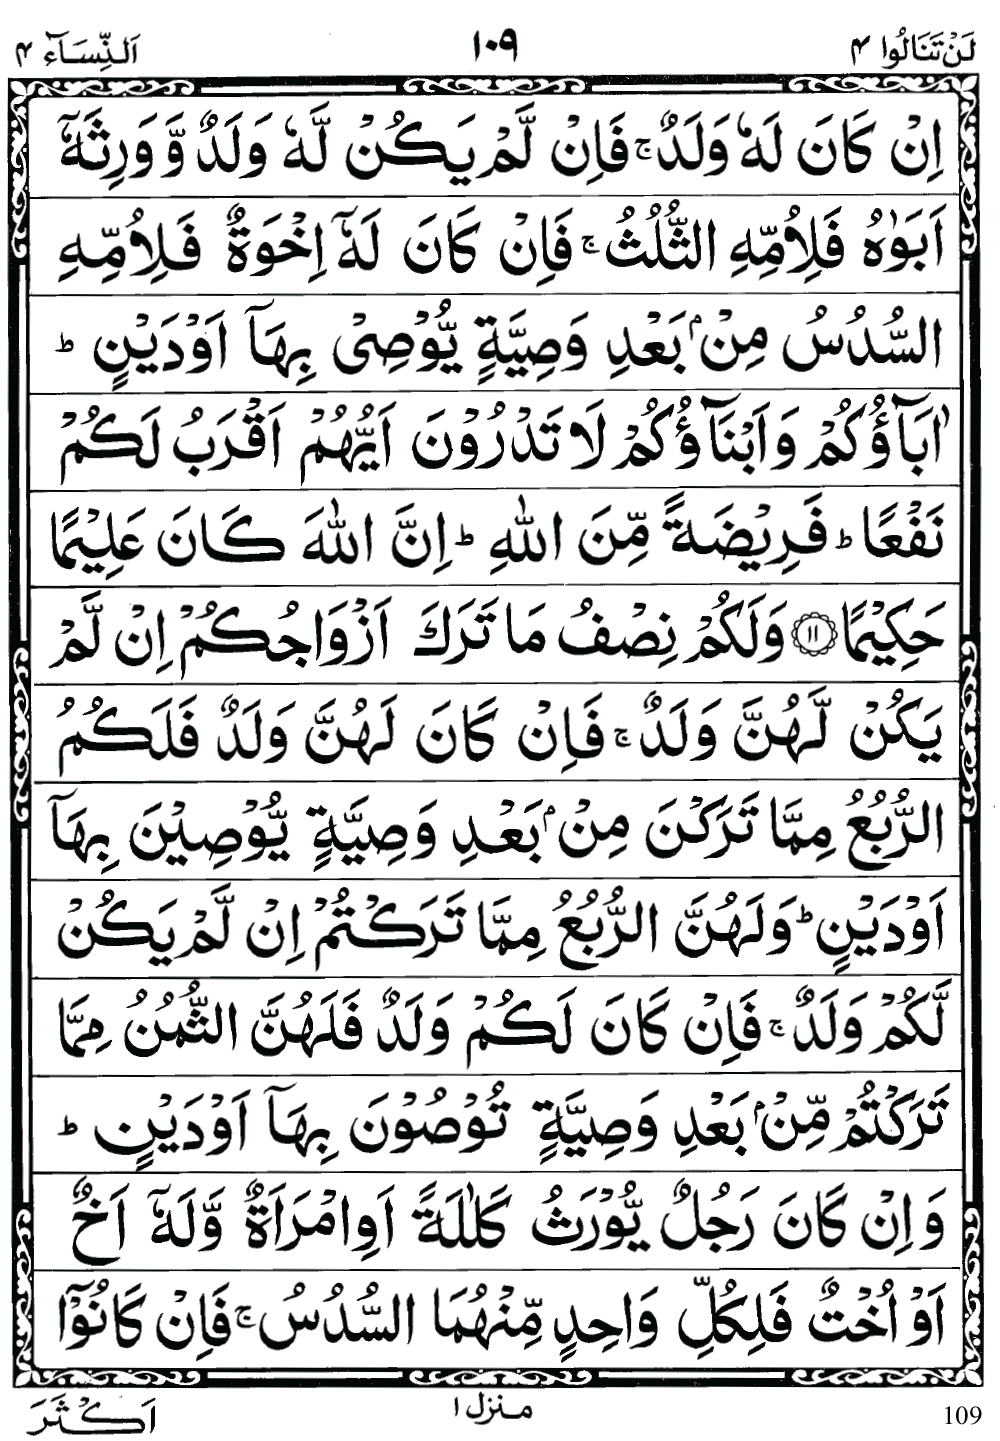 لَنْ تَنَالُوا ۴ ١٠٩ اَلنِّسَآء ۴
اِنْ كَانَ لَهٗ وَلَدٌ ۚ فَاِنْ لَّمْ يَكُنْ لَّهٗ وَلَدٌ وَّ وَرِثَهٗۤ
اَبَوٰهُ فَلِاُمِّهِ الثُّلُثُ ۚ فَاِنْ كَانَ لَهٗۤ اِخْوَةٌ فَلِاُمِّهِ
السُّدُسُ مِنْۢ بَعْدِ وَصِيَّةٍ يُّوْصِىْ بِهَاۤ اَوْ دَيْنٍ ؕ
اٰبَآؤُكُمْ وَ اَبْنَآؤُكُمْ لَا تَدْرُوْنَ اَيُّهُمْ اَقْرَبُ لَكُمْ
نَفْعًا ؕ فَرِيْضَةً مِّنَ اللّٰهِ ؕ اِنَّ اللّٰهَ كَانَ عَلِيْمًا
حَكِيْمًا ١١ وَلَكُمْ نِصْفُ مَا تَرَكَ اَزْوَاجُكُمْ اِنْ لَّمْ
يَكُنْ لَّهُنَّ وَلَدٌ ۚ فَاِنْ كَانَ لَهُنَّ وَلَدٌ فَلَكُمُ
الرُّبُعُ مِمَّا تَرَكْنَ مِنْۢ بَعْدِ وَصِيَّةٍ يُّوْصِيْنَ بِهَاۤ
اَوْ دَيْنٍ ؕ وَلَهُنَّ الرُّبُعُ مِمَّا تَرَكْتُمْ اِنْ لَّمْ يَكُنْ
لَّكُمْ وَلَدٌ ۚ فَاِنْ كَانَ لَكُمْ وَلَدٌ فَلَهُنَّ الثُّمُنُ مِمَّا
تَرَكْتُمْ مِّنْۢ بَعْدِ وَصِيَّةٍ تُوْصُوْنَ بِهَاۤ اَوْ دَيْنٍ ؕ
وَ اِنْ كَانَ رَجُلٌ يُّوْرَثُ كَلٰلَةً اَوِ امْرَاَةٌ وَّلَهٗۤ اَخٌ
اَوْ اُخْتٌ فَلِكُلِّ وَاحِدٍ مِّنْهُمَا السُّدُسُ ۚ فَاِنْ كَانُوْۤا
109 منزل ١ اَكْثَرَ